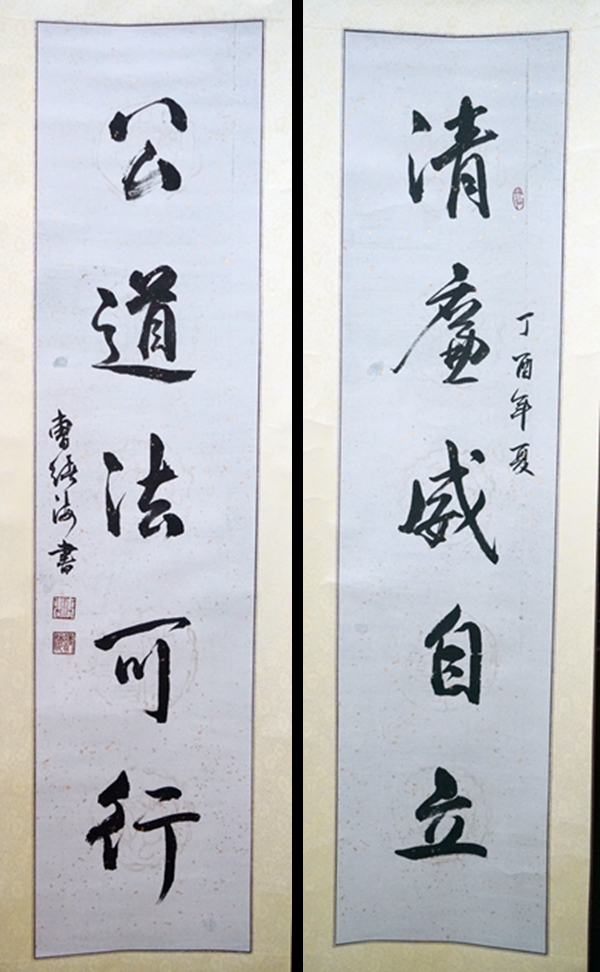 丁酉年夏
清廉威自立
公道法可行
曹海書